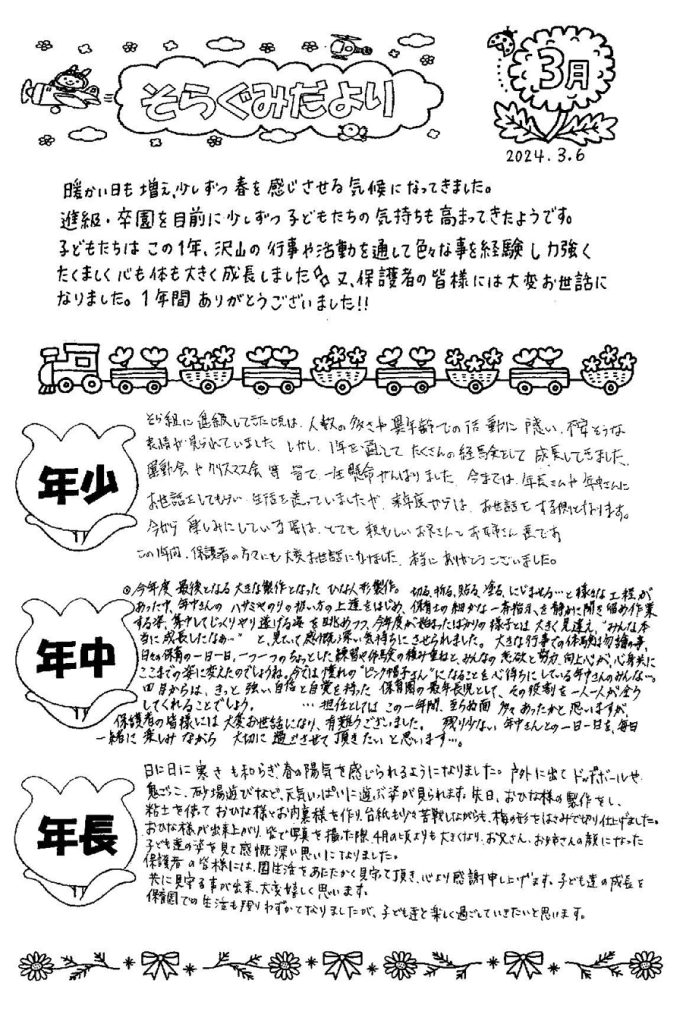 そらぐみだより
3月
2024.3.6
暖かい日も増え、少しずつ春を感じさせる気候になってきました。
進級・卒園を目前に少しずつ子どもたちの気持ちも高まってきたようです。
子どもたちはこの1年、沢山の行事や活動を通して色々な事を経験し力強く
たくましく心も体も大きく成長しました 又、保護者の皆様には大変お世話に
なりました。1年間ありがとうございました!!
年少
そら組に進級してきた頃は、人数の多さや異年齢での活動に戸惑い、不安そうな
表情が見られていました。しかし、1年を通してたくさんの経験をして成長してきました。
運動会やクリスマス会等 皆で一生懸命がんばりました。今までは、年長さんや年中さんに
お世話をしてもらい生活を送っていましたが、来年度からは、お世話をする側となります。
今から楽しみにしている姿は、とても頼もしいお兄さんとお姉さん達です
この1年間、保護者の方々にも大変お世話になりました。本当にありがとうございました。
年中
◎今年度最後となる大きな製作となったひな人形製作。切る、折る、貼る、塗る、にじませる…と様々な工程が
あった中、年中さんのハサミやのりの扱い方の上達をはじめ、保育士の細かな一斉指示を静かに聞き留め作業
する姿、集中してじっくりやり遂げる姿を眺めつつ、今年度が始まったばかりの様子とは大きく見違え、"みんな本
当に成長したなぁ…"と、見ていて感慨深い気持ちにさせられました。大きな行事での体験は勿論の事、
日々の保育の一日一日、一つ一つのちょっとした練習や体験の積み重ねと、みんなの意欲と努力、向上心が、心身共に
ここまでの姿に変えたのでしょうね。今では憧れの"ピンク帽子さん"になることを心待ちにしている年中さんのみんな♡。
四月からは、きっと強い自信と自覚を持った保育園の最年長児として、その役割を一人一人が全う
してくれることでしょう。 …担任としてはこの一年間、至らぬ面多々あったかと思いますが、
保護者の皆様には大変お世話になり、有難うございました。残り少ない年中さんとの一日一日を、毎日
一緒に楽しみながら大切に過ごさせて頂きたいと思います…。
年長
日に日に寒さも和らぎ、春の陽気を感じられるようになりました。戸外に出てドッヂボールや、
鬼ごっこ、砂場遊びなど、元気いっぱいに遊ぶ姿が見られます。先日、おひな様の製作をし、
粘土を使っておひな様とお内裏様を作り、台紙も少々苦戦しながらも、梅の形をはさみで切り仕上げました。
おひな様が出来上がり、皆で写真を撮った際、4月の頃よりも大きくなり、お兄さん、お姉さんの顔になった
子ども達の姿を見て感慨深い思いになりました。
保護者の皆様には、園生活をあたたかく見守って頂き、心より感謝申し上げます。子ども達の成長を
共に見守る事が出来、大変嬉しく思います。
保育園での生活も残りわずかとなりましたが、子ども達と楽しく過ごしていきたいと思います。